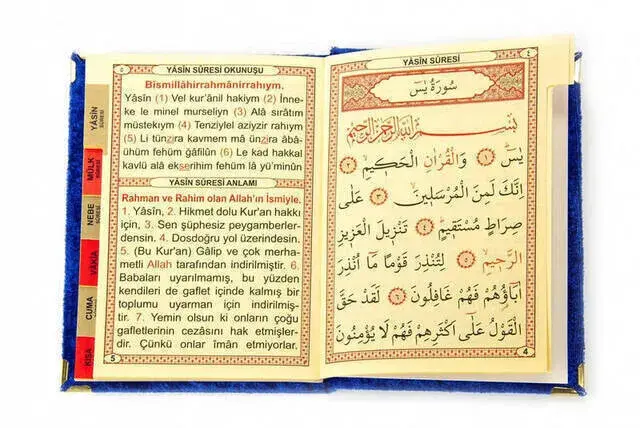 YÂSÎN SÛRESİ
٤
سُورَةُ يٰسٓ
بِسْــــمِ اللّٰهِ الرَّحْمٰنِ الرَّحِيمِ
يٰسٓ ﴿١﴾ وَالْقُرْاٰنِ الْحَكِيمِۙ ﴿٢﴾
اِنَّكَ لَمِنَ الْمُرْسَلِينَۙ ﴿٣﴾ عَلٰى
صِرَاطٍ مُسْتَقِيمٍۜ ﴿٤﴾ تَنْزِيلَ الْعَزِيزِ
الرَّحِيمِۙ ﴿٥﴾ لِتُنْذِرَ قَوْمًا مَٓا اُنْذِرَ
اٰبَٓاؤُ۬هُمْ فَهُمْ غَافِلُونَ ﴿٦﴾ لَقَدْ حَقَّ
الْقَوْلُ عَلٰٓى اَكْثَرِهِمْ فَهُمْ لَا يُؤْمِنُونَ
4
٥
YÂSÎN SÛRESİ OKUNUŞU
Bismillâhirrahmânirrahıym.
Yâsîn (1) Vel kur'ânil hakiym (2) İnne-
ke le minel murseliyn (3) Alâ sırâtım
müstekıym (4) Tenziylel aziyzir rahıym
(5) Li tünzira kavmem mâ ünzira âbâ-
ühüm fehüm gâfilûn (6) Le kad hakkal
kavlü alâ ekserihim fehüm lâ yü'minûn
YÂSÎN SÛRESİ ANLAMI
Rahman ve Rahim olan Allah'ın İsmiyle.
1. Yâsîn, 2. Hikmet dolu Kur'an hakkı
için, 3. Sen şüphesiz peygamberler-
densin. 4. Dosdoğru yol üzerindesin.
5. (Bu Kur'an) Gâlip ve çok merha-
metli Allah tarafından indirilmiştir. 6.
Babaları uyarılmamış, bu yüzden
kendileri de gaflet içinde kalmış bir
toplumu uyarman için indirilmiş-
tir. 7. Yemin olsun ki onların çoğu
gafletlerinin cezasını hak etmişler-
dir. Çünkü onlar îmân etmiyorlar.
5
YÂSÎN
SÛRESİ
MÜLK
SÛRESİ
NEBE
SÛRESİ
VÂKIA
CUMA
KISA